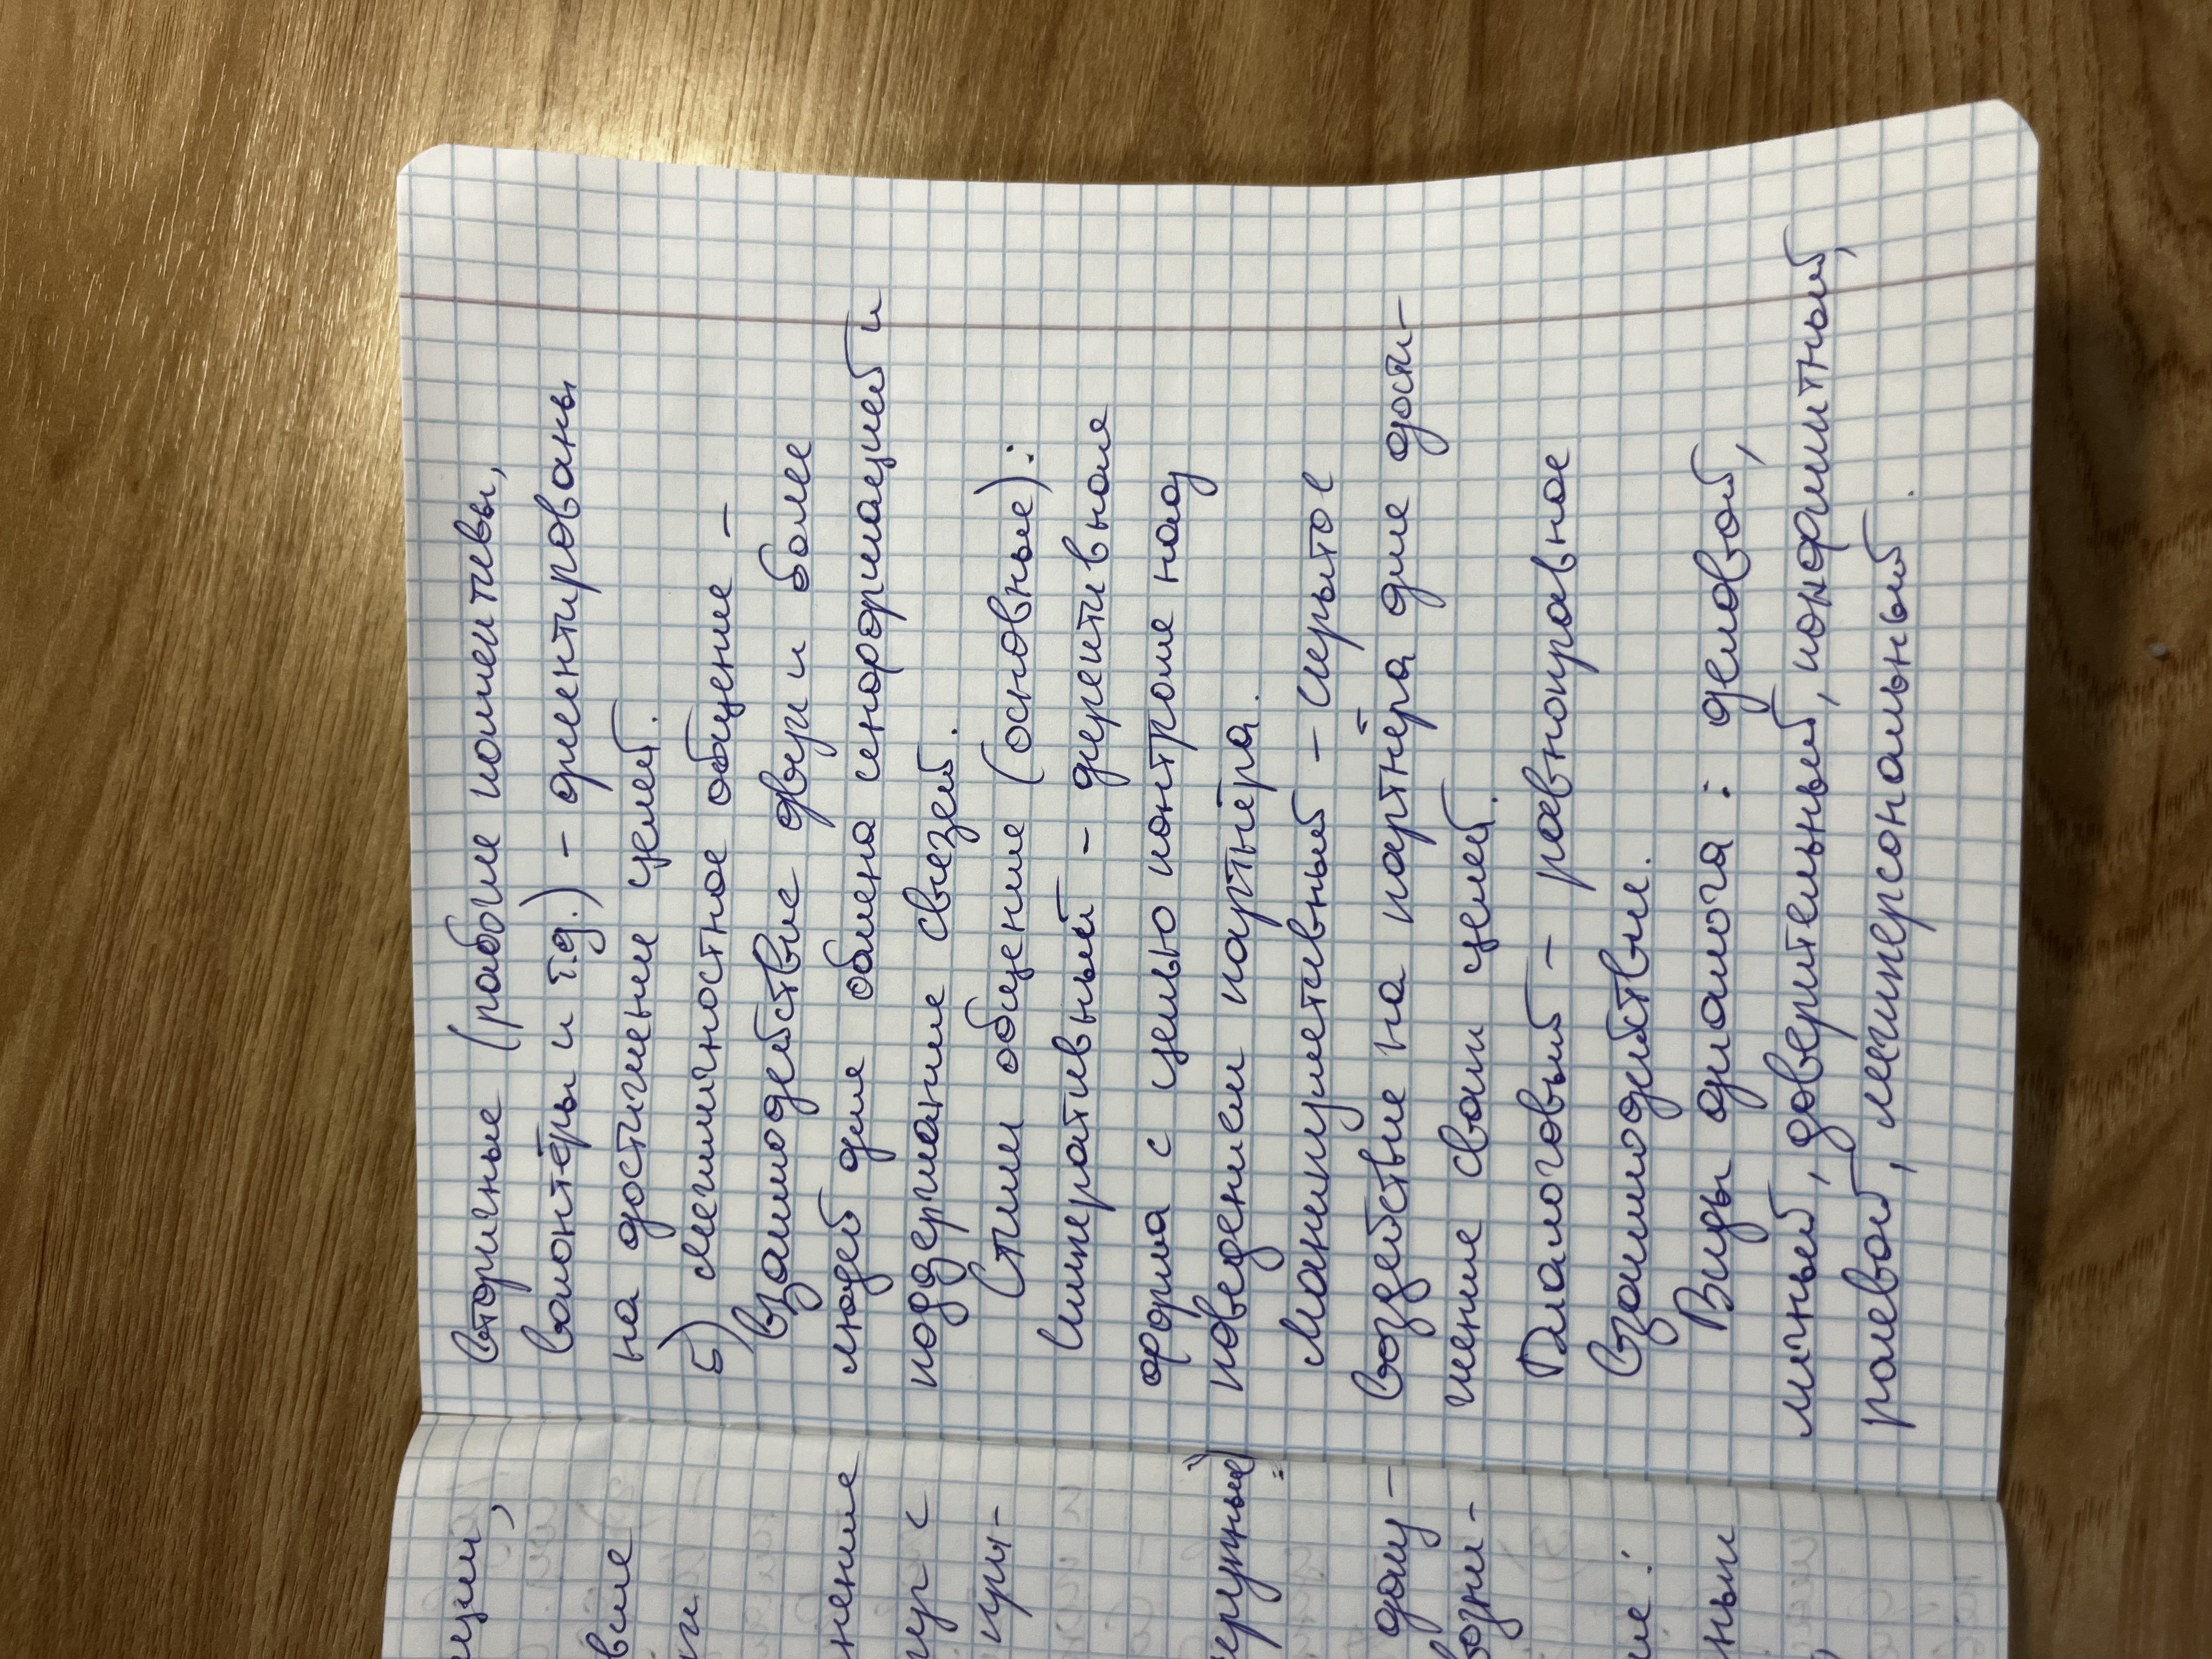 Вторичные (рабочие коллективы,
волонтёры и т.д.) – ориентированы
на достижение целей.
5) Межличностное общение –
взаимодействие двух и более
людей для обмена информацией и
поддержание связей.
Стили общения (основные):
Императивный – директивная
форма с целью контроля над
поведением партнёра.
Манипулятивный – скрытое
воздействие на партнёра для дости-
жения своих целей.
Диалоговый – равноправное
взаимодействие.
Виды диалога: деловой,
личный, доверительный, конфликтный,
ролевой, межперсональный.
нение